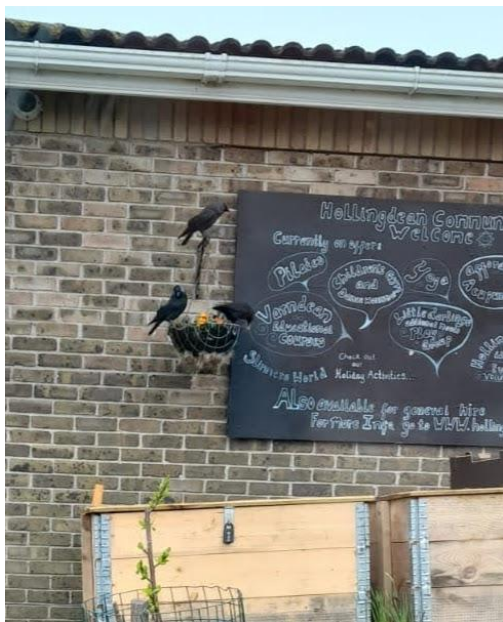 Hollingdean Commun
WELCOME
Currently on offer:
Pilates
Children's
and
Yoga
Varndean
Educational
Courses
Little
additional needs
PLAY
Check out
our
Holiday Activities...
World
Also available for general hire
For More Info go to WWW.hollin